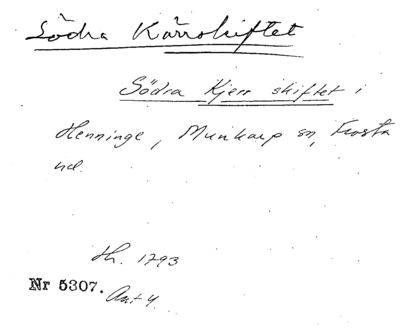 Södra Kärrskiftet
Södra Kjerr skiftet i
Henninge, Munkarp sn, Frosta
hd.
Hr. 1793
Nr 5307.
Akt 4.